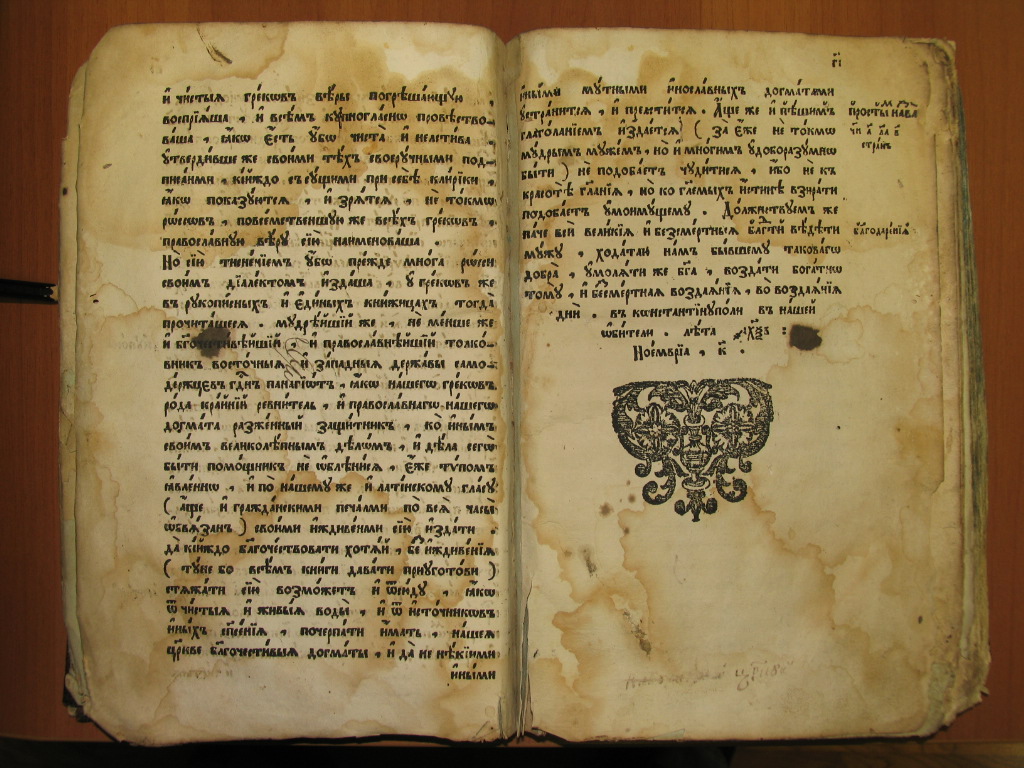 и҆ чи́стыѧ гре́кѡвъ вѣ́рѣ погрѣша́ющꙋю ,
воспрїѧ́ша , и҆ всѣ́мъ кꙋпногла́снѡ проповѣ́ство-
ва́ша , ꙗ҆́кѡ є҆́сть ᲂу҆́бѡ чиста̀ и҆ неле́стива .
ᲂу҆тверди́вше же свои́ми тѣ́хъ своерꙋ́чными под-
писа́ньми , ко́йждо съ сꙋ́щими при себѣ̀ кли́рїки ,
ꙗ҆́кѡ показꙋ́ютсѧ , и҆ зрѧ́тсѧ , не то́кмѡ
рѡ́ссѡвъ , повсемѣ́ственнꙋю же всѣ́хъ гре́кѡвъ ,
правосла́внꙋю вѣ́рꙋ сїю̀ наименова́ша .
Но̀ сїю̀ тисне́нїемъ ᲂу҆́бѡ пре́жде мно́га рѡ́сси
свои́мъ дїале́ктомъ и҆зда́ша , ᲂу҆ гре́кѡвъ же
въ рꙋкопи́сныхъ и҆ є҆ди́ныхъ кни́жицахъ тогда̀
прочита́шесѧ . мꙋдрѣ́йшїй же , не ме́нше же
и҆ бг҃очести́вѣйшїй , и҆ правосла́внѣйшїй толко́-
вникъ восто́чныѧ и҆ за́падныѧ держа́вы само-
де́ржцєвъ гдⷭ҇и́нъ панагїѡ́тъ , ꙗ҆́кѡ на́шегѡ гре́кѡвъ
ро́да кра́йнїй ревни́тель , и҆ правосла́внагѡ на́шегѡ
догма́та разже́нный защи́тникъ , ко̀ и҆ны́мъ
свои́мъ великолѣ́пнымъ дѣлѡ́мъ , и҆ дѣ́ла сегѡ̀
бы́ти помо́щникъ не ѡ҆блѣни́сѧ , є҆́же тѵ́помъ
ꙗ҆вле́ннѡ , и҆ по на́шемꙋ же и҆ лати́нскомꙋ гла́сꙋ
( а҆́ще и҆ гражда́нскими печа́льми по всѧ̀ часы̀
ѡ҆бвѧ́занъ ) свои́ми и҆ждиве́ньми сїю̀ и҆зда́ти .
да̀ ко́йждо бл҃гоче́ствовати хотѧ́й , бе́з̾ и҆ждиве́нїѧ
( тꙋ́не бо всѣ́мъ кни́ги дава́ти приꙋгото́ви )
стѧжа́ти сїю̀ возмо́жетъ и҆ ѿню́дꙋ , ꙗ҆́кѡ
ѿ чи́стыѧ и҆ живы́ѧ воды̀ , и҆ ѿ и҆сто́чникѡвъ
и҆́нныхъ сп҃се́нїѧ , почерпа́ти и҆́мать , на́шеѧ
цр҃кве бл҃гочести́выѧ догма́ты , и҆ да̀ не нѣ́кїими
и҆ны́ми
г҃і
и҆ны́ми мꙋ́тными и҆носла́вныхъ дѡ́гматами
ᲂу҆страни́тсѧ , и҆ прельсти́тсѧ . А҆́ще же и҆ пѣ́шимъ
глаго́ланїемъ и҆здае́тсѧ ( за̀ є҆́же не то́кмѡ
мꙋ́дрымъ мꙋже́мъ , но̀ и҆ мнѡ́гимъ ᲂу҆доборазꙋ́мнѡ
бы́ти ) не подоба́етъ чꙋди́тисѧ , и҆́бо не къ
красотѣ̀ гл҃а́нїѧ , но̀ ко гл҃емыхъ и҆́стинѣ взира́ти
подоба́етъ ᲂу҆моимꙋ́щемꙋ . До́лжнствꙋемъ же
па́че всѝ вели́кїѧ и҆ безсме́ртныѧ бл҃года́ти вѣ́дѣти
мꙋ́жꙋ , хода́таю на́мъ бы́вшемꙋ такова́гѡ
добра̀ , ᲂу҆молѧ́ти же бг҃а , возда́ти бога́тнѡ
томꙋ̀ , и҆ безсме́ртнаѧ воздаѧ́нїѧ , во воздаѧ́нїѧ
дни̑ . въ кѡнстантїнꙋ́поли въ на́шей
ѡ҆би́тели . лѣ́та ҂аⷯ҇ѯв :
Ноє́мврїа , к҃ .
про́стымъ
стрⷩ҇іѧ
бл҃годаре́нїѧ